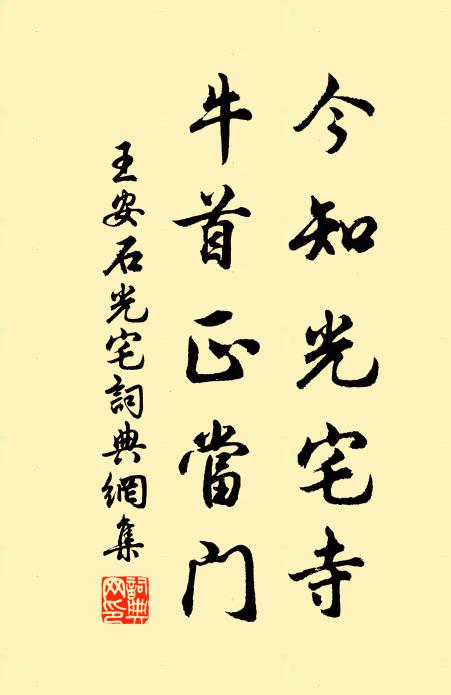 今知光宅寺
牛首正當門
王安石光宅詞典網集
詞典網印